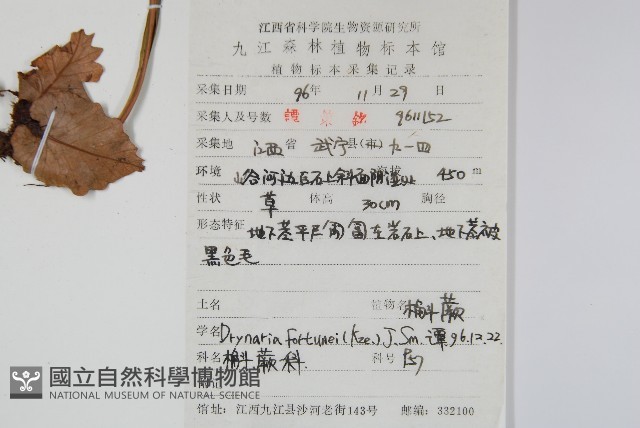 江西省科学院生物资源研究所
九江森林植物标本馆
植物标本采集记录
采集日期 96年 11月 29日
采集人及号数 譚 策 銘 9611152
采集地 江西省 武宁县(市) 九一四
环境 山谷河边巨石上斜面阴湿处 海拔 450m
性状 草 体高 30cm 胸径
形态特征 地下茎平 在岩石上、地下茎被
黑色毛
土名 植物名 槲蕨
学名 Drynaria fortunei (Kze.) J.Sm. 谭 96.12.22
科名 槲蕨科 科号
附记
國立自然科學博物館
NATIONAL MUSEUM OF NATURAL SCIENCE
馆址:江西九江县沙河老街143号 邮编:332100